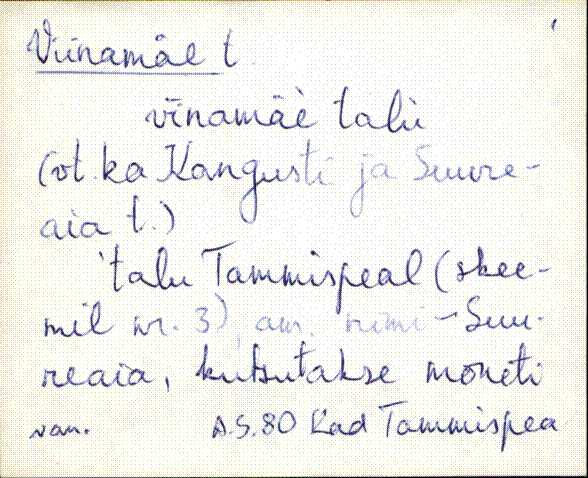 Viinamäe t.
vīnamäè talù
(vt. ka Kangusti ja Suure-
aia t.)
'talu Tammispeal (skee-
mil nr. 3), am. nimi – Suu-
reaia, kutsutakse mõneti
van. A.S. 80 Kad Tammispea